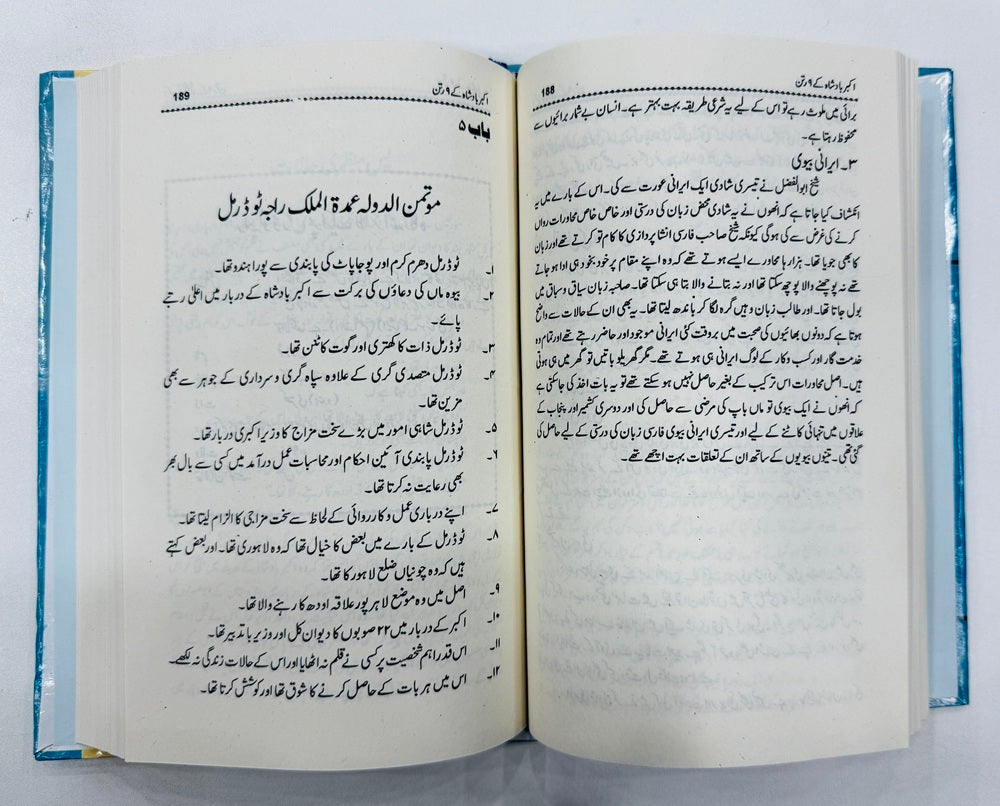 188
اکبر بادشاہ کے ۹ رتن
برائی میں ملوث رہے تو اس کے لیے یہ شرعی طریقہ بہت بہتر ہے۔ انسان بے شمار برائیوں سے
محفوظ رہتا ہے۔
۳۔ ایرانی بیوی
شیخ ابوالفضل نے تیسری شادی ایک ایرانی عورت سے کی۔ اس کے بارے میں یہ
انکشاف کیا جاتا ہے کہ انھوں نے یہ شادی محض زبان کی درستی اور خاص خاص محاورات رواں
کرنے کی غرض سے کی ہوگی کیونکہ شیخ صاحب فارسی انشا پردازی کا کام تو کرتے تھے اور زبان
کا بھی جویا تھا۔ ہزارہا محاورے ایسے ہوتے تھے کہ وہ اپنے مقام پر خود بخود ہی ادا ہو جاتے
تھے نہ پوچھنے والا پوچھ سکتا تھا اور نہ بتانے والا بتا ہی سکتا تھا۔ صاحبہ زبان سیاق و سباق میں
بول جاتا تھا۔ اور طالب زبان وہیں گرہ لگا کر باندھ لیتا تھا۔ یہ بھی ان کے حالات سے واضح
ہوتا ہے کہ دونوں بھائیوں کی صحبت میں بروقت کئی ایرانی موجود اور حاضر رہتے تھے اور تمام وہ
خدمت گار اور کسب و کار کے لوگ ایرانی ہی ہوتے تھے۔ مگر گھریلو باتیں تو گھر میں ہی ہوتی
ہیں۔ اصل محاورات اس ترکیب کے بغیر حاصل نہیں ہو سکتے تھے تو یہ بات اخذ کی جا سکتی ہے
کہ انھوں نے ایک بیوی تو ماں باپ کی مرضی سے حاصل کی اور دوسری کشمیر اور پنجاب کے
علاقوں میں تنہائی کاٹنے کے لیے اور تیسری ایرانی بیوی فارسی زبان کی درستی کے لیے حاصل کی
گئی تھی۔ تینوں بیویوں کے ساتھ ان کے تعلقات بہت اچھے تھے۔
189
اکبر بادشاہ کے ۹ رتن
باب ۵
موتمن الدولہ عمدۃ الملک راجہ ٹوڈرمل
۱۔ ٹوڈرمل دھرم کرم اور پوجا پاٹ کی پابندی سے پورا ہندو تھا۔
۲۔ بیوہ ماں کی دعاؤں کی برکت سے اکبر بادشاہ کے دربار میں اعلیٰ رتبے
پائے۔
۳۔ ٹوڈرمل ذات کا کھتری اور گوت کا ٹنن تھا۔
۴۔ ٹوڈرمل متصدی گری کے علاوہ سپاہ گری و سرداری کے جوہر سے بھی
مزین تھا۔
۵۔ ٹوڈرمل شاہی امور میں بڑے سخت مزاج کا وزیر اکبری دربار تھا۔
۶۔ ٹوڈرمل پابندی آئین احکام اور محاسبات عمل درآمد میں کسی سے بال بھر
بھی رعایت نہ کرتا تھا۔
۷۔ اپنے درباری عمل و کارروائی کے لحاظ سے سخت مزاجی کا الزام لیتا تھا۔
۸۔ ٹوڈرمل کے بارے میں بعض کا خیال تھا کہ وہ لاہوری تھا۔ اور بعض کہتے
ہیں کہ وہ چونیاں ضلع لاہور کا تھا۔
۹۔ اصل میں وہ موضع لاہرپور علاقہ اودھ کا رہنے والا تھا۔
۱۰۔ اکبر کے دربار میں ۲۲ صوبوں کا دیوان کل اور وزیر باتدبیر تھا۔
۱۱۔ اس قدر اہم شخصیت پر کسی نے قلم نہ اٹھایا اور اس کے حالات زندگی نہ لکھے۔
۱۲۔ اس میں ہر بات کے حاصل کرنے کا شوق تھا اور کوشش کرتا تھا۔